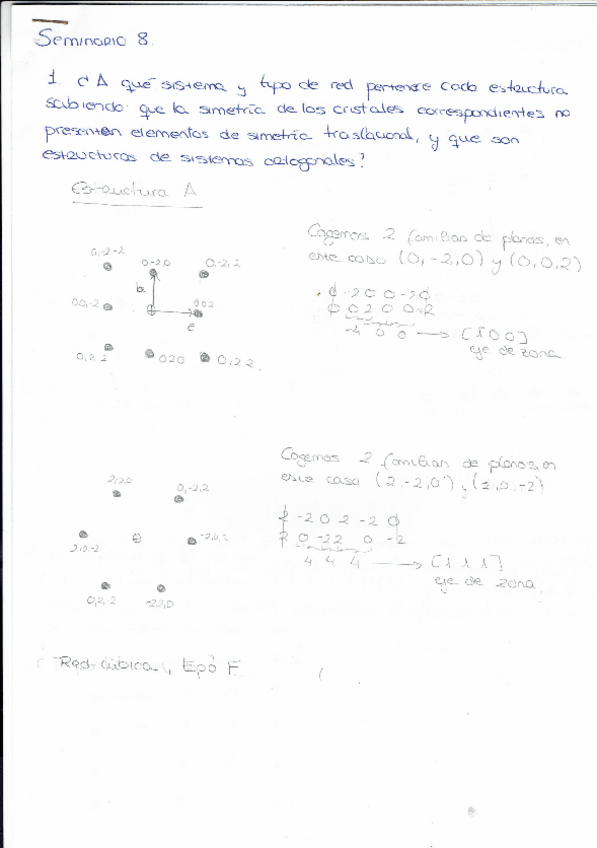 Seminario 8.
1. ¿A qué sistema y tipo de red pertenece cada estructura
sabiendo que la simetría de los cristales correspondientes no
presentan elementos de simetría traslacional, y que son
estructuras de sistemas octogonales?
Estructura A
Cogemos 2 familias de planos, en
este caso (0,-2,0) y (0,0,2)
0,-2-2 0-2,0 0,-2,2
b
0 -2 0 0 -2 0
0 0 2 0 0 2
0,0,-2 002
c
-4 0 0 → [1̄ 0 0]
eje de zona
0,2 2 020 0,2 2
Cogemos 2 familias de planos, en
este caso (2,-2,0) y (2,0,-2)
2,2,0 0,-2,2
2 -2 0 2 -2 0
2 0 -2 2 0 -2
2,0-2 -2,0,2
4 4 4 → [1 1 1]
eje de zona
0,2,-2 -2,2,0
Red cúbica, tipo F